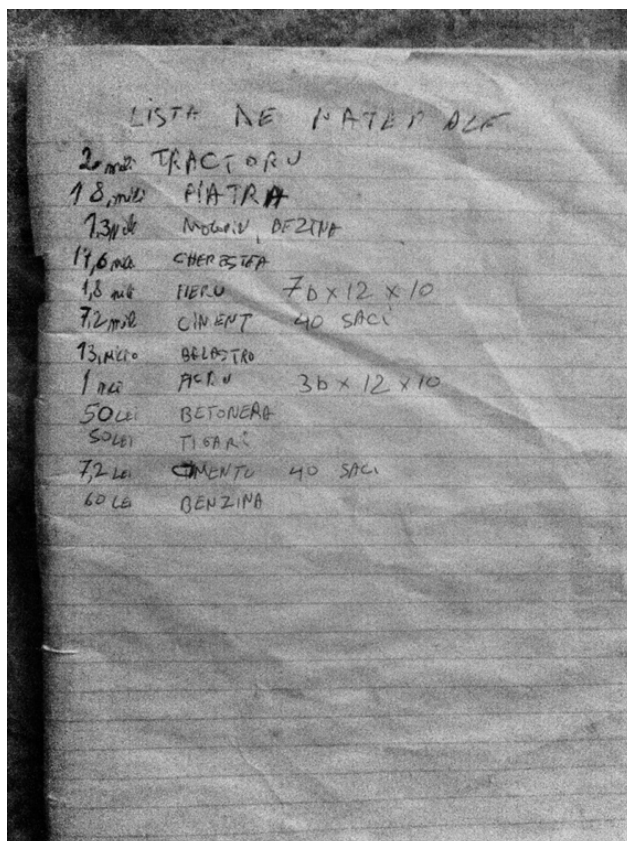 LISTA DE MATERIALE
2 mili TRACTORU
18, mili PIATRA
1,3 mili MOTORIN, BEZINA
17,6 mili CHERESTEA
1,8 mili FIERU 7b x 12 x 10
7,2 mili CIMENT 40 SACI
13, BELASTRO
1 FIERU 3b x 12 x 10
50 LEI BETONERA
50 LEI TIGARI
7,2 LEI CIMENTU 40 SACI
60 LEI BENZINA